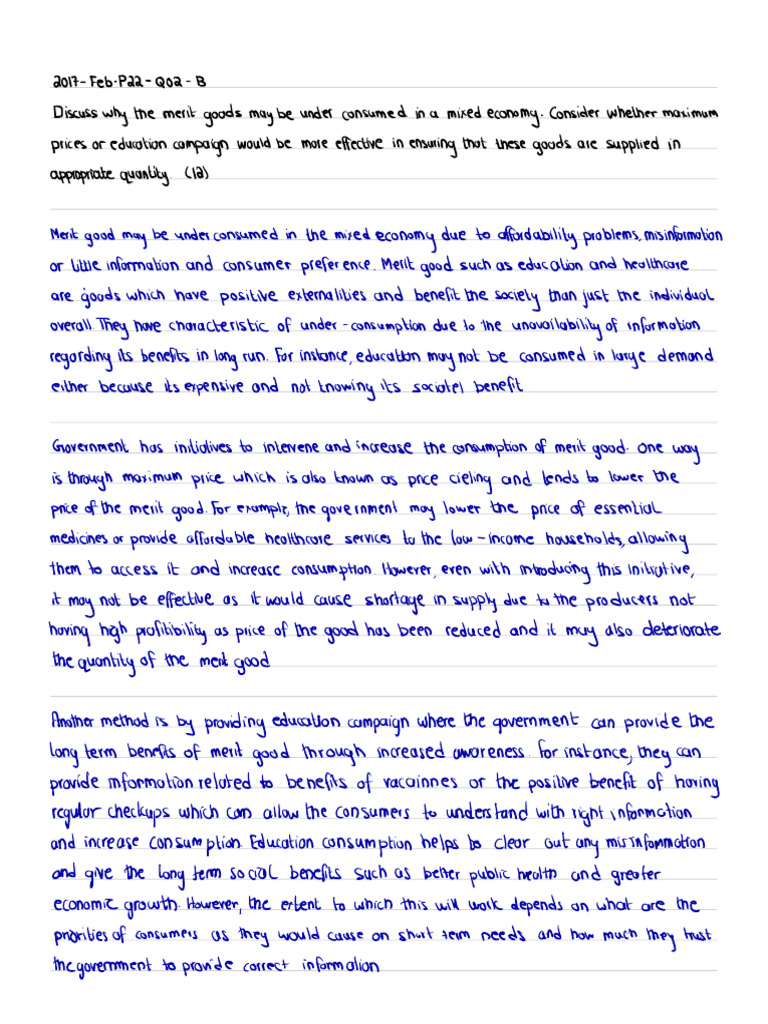 2017-Feb-P22-Q02-B
Discuss why the merit goods may be under consumed in a mixed economy. Consider whether maximum
prices or education campaign would be more effective in ensuring that these goods are supplied in
appropriate quantity. (12)
Merit good may be under consumed in the mixed economy due to affordability problems, misinformation
or little information and consumer preference. Merit good such as education and healthcare
are goods which have positive externalities and benefit the society than just the individual
overall. They have characteristic of under-consumption due to the unavailability of information
regarding its benefits in long run. For instance, education may not be consumed in large demand
either because its expensive and not knowing its societel benefit
Government has initiatives to intervene and increase the consumption of merit good. One way
is through maximum price which is also known as price cieling and tends to lower the
price of the merit good. For example, the government may lower the price of essential
medicines or provide affordable healthcare services to the low-income households, allowing
them to access it and increase consumption. However, even with introducing this initiative,
it may not be effective as it would cause shortage in supply due to the producers not
having high profitibility as price of the good has been reduced and it may also deteriorate
the quantity of the merit good
Another method is by providing education campaign where the government can provide the
long term benefits of merit good through increased awareness. For instance, they can
provide information related to benefits of vacainnes or the positive benefit of having
regular checkups which can allow the consumers to understand with right information
and increase consumption. Education consumption helps to clear out any misinformmation
and give the long term social benefits such as better public health and greater
economic growth. However, the extent to which this will work depends on what are the
priorities of consumers as they would cause on short term needs and how much they trust
the government to provide correct information